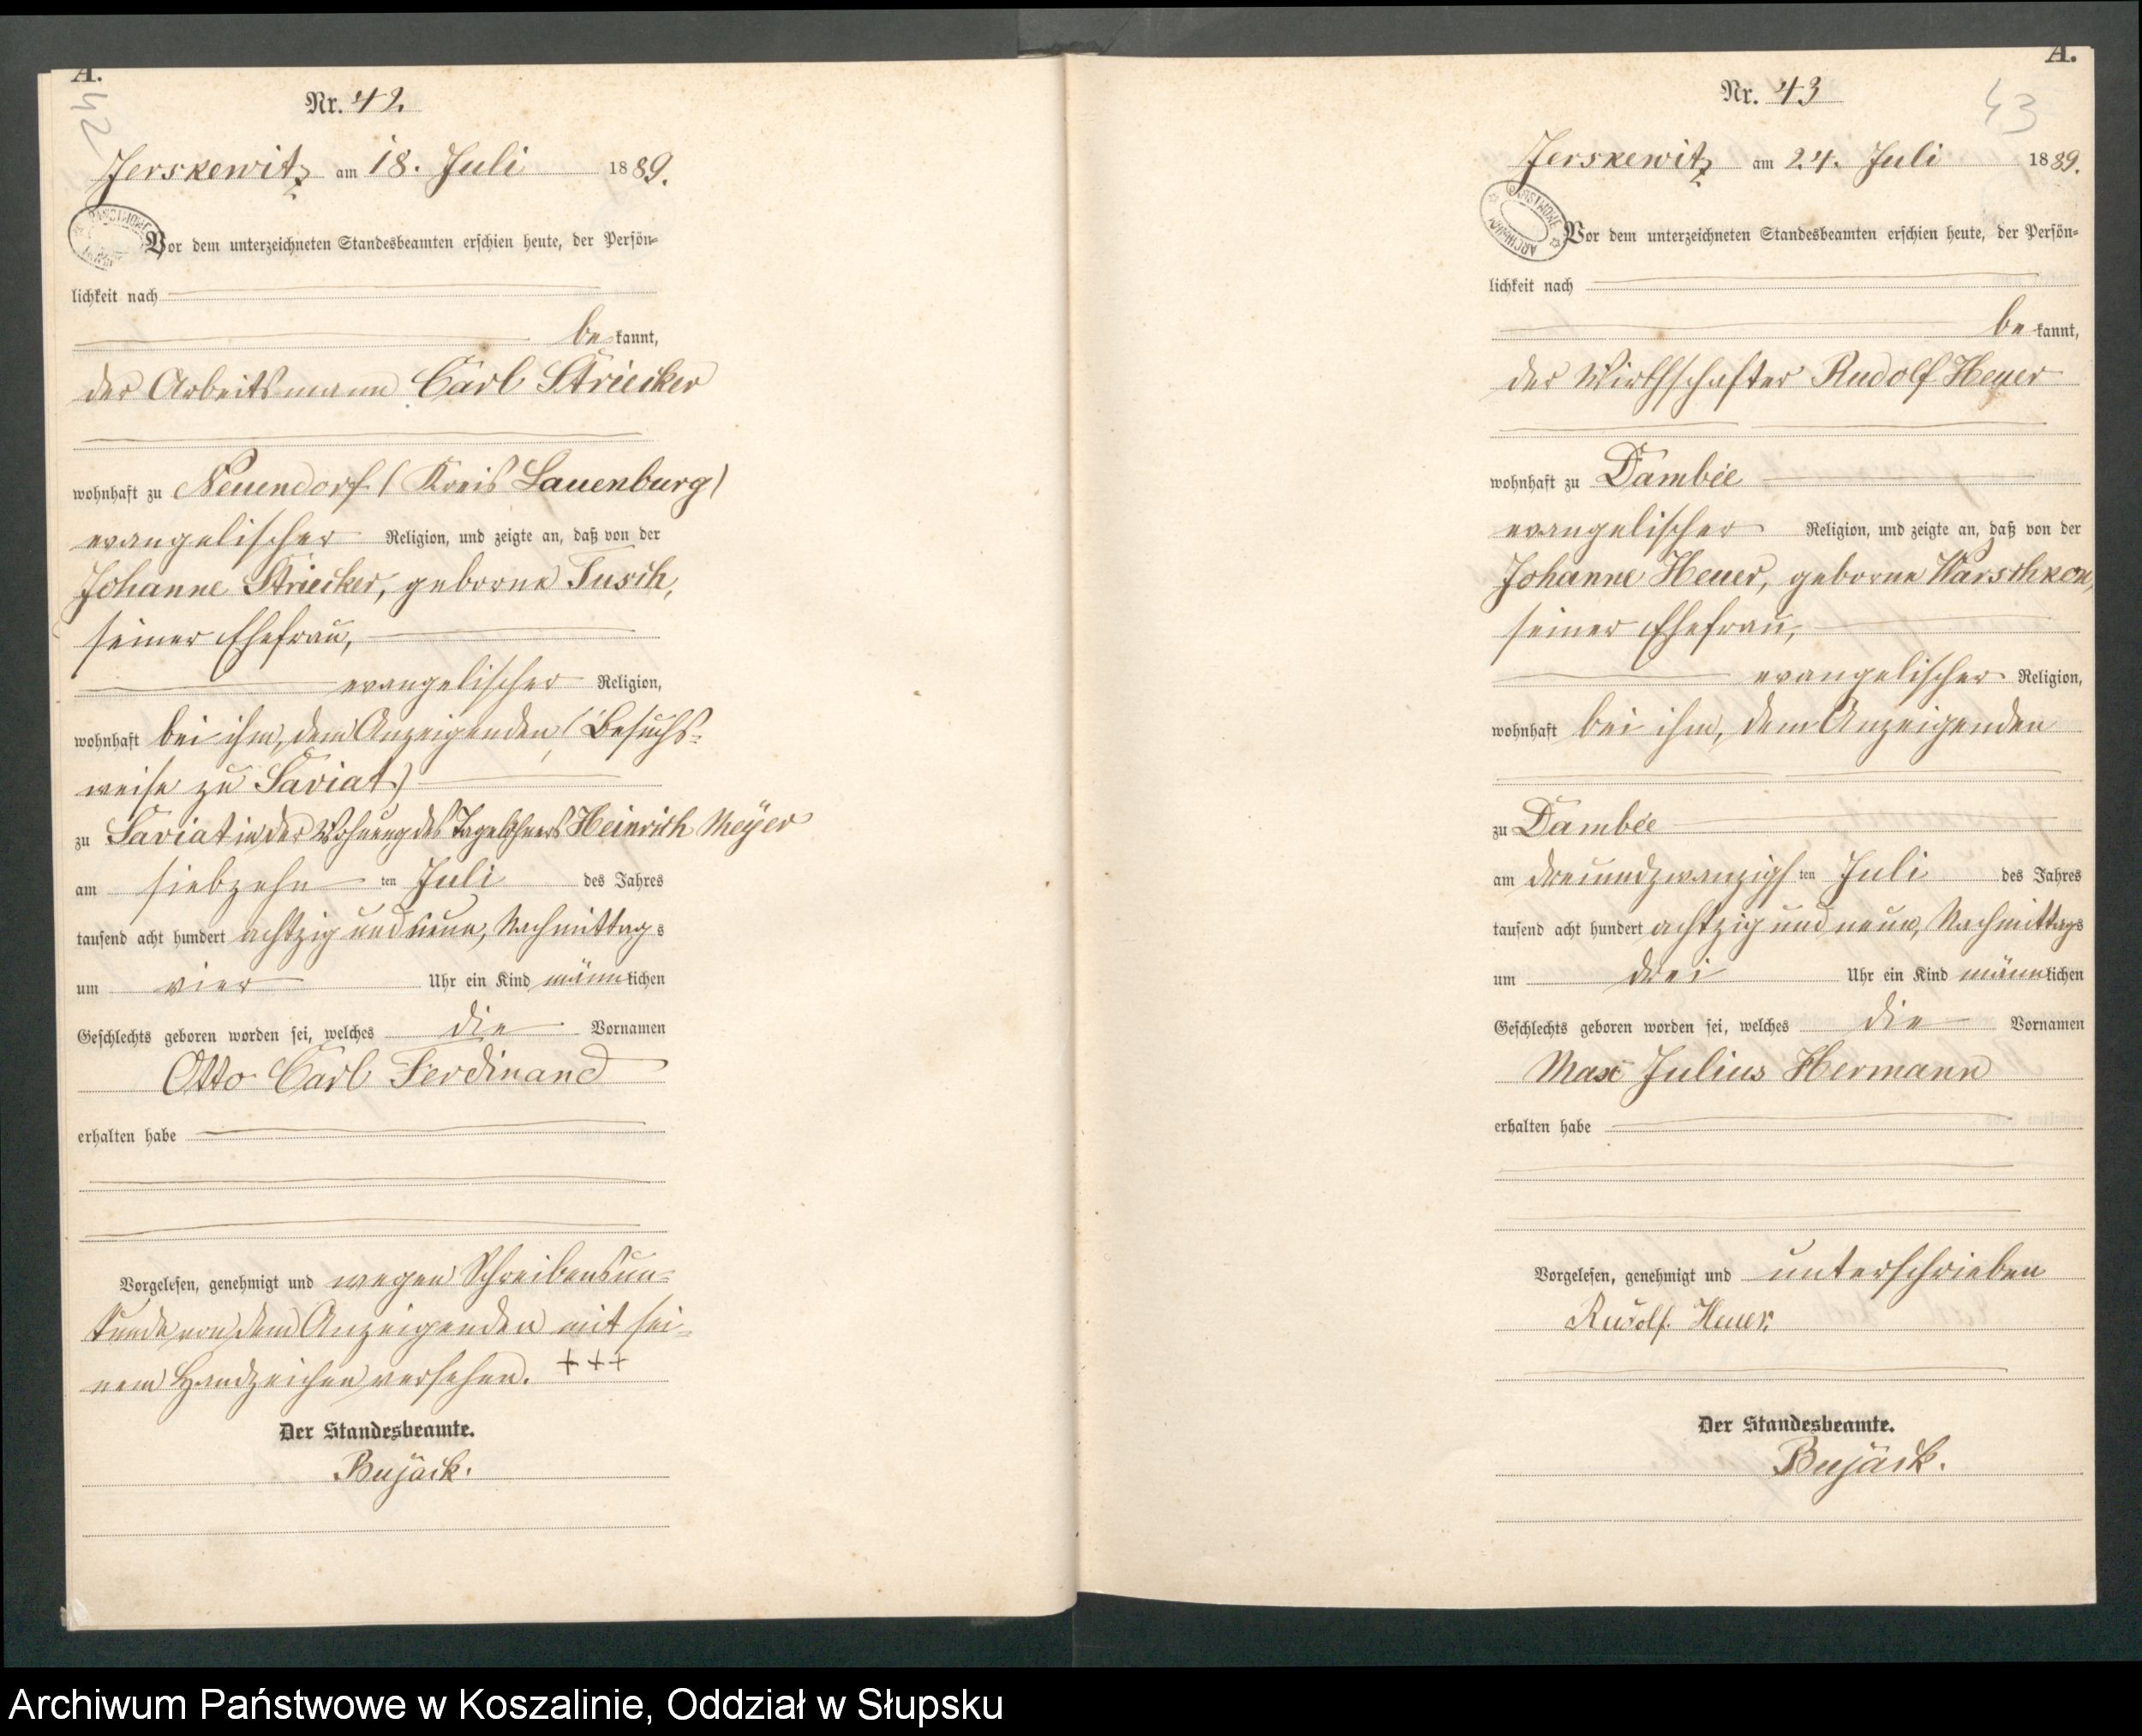 A.
42
Nr. 42.
Jerskewitz am 18. Juli 1889.
Vor dem unterzeichneten Standesbeamten erschien heute, der Persön-
lichkeit nach
be kannt,
der Arbeitsmann Carl Striecker
wohnhaft zu Neuendorf (Kreis Lauenburg)
evangelischer Religion, und zeigte an, daß von der
Johanne Striecker, geborne Tusch,
seiner Ehefrau,
evangelischer Religion,
wohnhaft bei ihm, dem Anzeigenden (Besuchs-
weise zu Saviat)
zu Saviat in der Wohnung des Tagelöhners Heinrich Meÿer
am siebzehn ten Juli des Jahres
tausend acht hundert achtzig und neun, Nachmittag s
um vier Uhr ein Kind männlichen
Geschlechts geboren worden sei, welches die Vornamen
Otto Carl Ferdinand
erhalten habe
Vorgelesen, genehmigt und wegen Schreibensun-
kunde von dem Anzeigenden mit sei-
nem Handzeichen versehen. +++
Der Standesbeamte.
Bujäck.
A.
43
Nr. 43
Jerskewitz am 24. Juli 1889.
ARCHIWUM
Vor dem unterzeichneten Standesbeamten erschien heute, der Persön-
lichkeit nach
be kannt,
der Wirthschafter Rudolf Heuer
wohnhaft zu Dambée
evangelischer Religion, und zeigte an, daß von der
Johanne Heuer, geborne Warschkow,
seiner Ehefrau,
evangelischer Religion,
wohnhaft bei ihm, dem Anzeigenden
zu Dambée
am dreiundzwanzigsten Juli des Jahres
tausend acht hundert achtzig und neun, Nachmittags
um drei Uhr ein Kind männlichen
Geschlechts geboren worden sei, welches die Vornamen
Max Julius Hermann
erhalten habe
Vorgelesen, genehmigt und unterschrieben
Rudolf Heuer.
Der Standesbeamte.
Bujäck.
Archiwum Państwowe w Koszalinie, Oddział w Słupsku